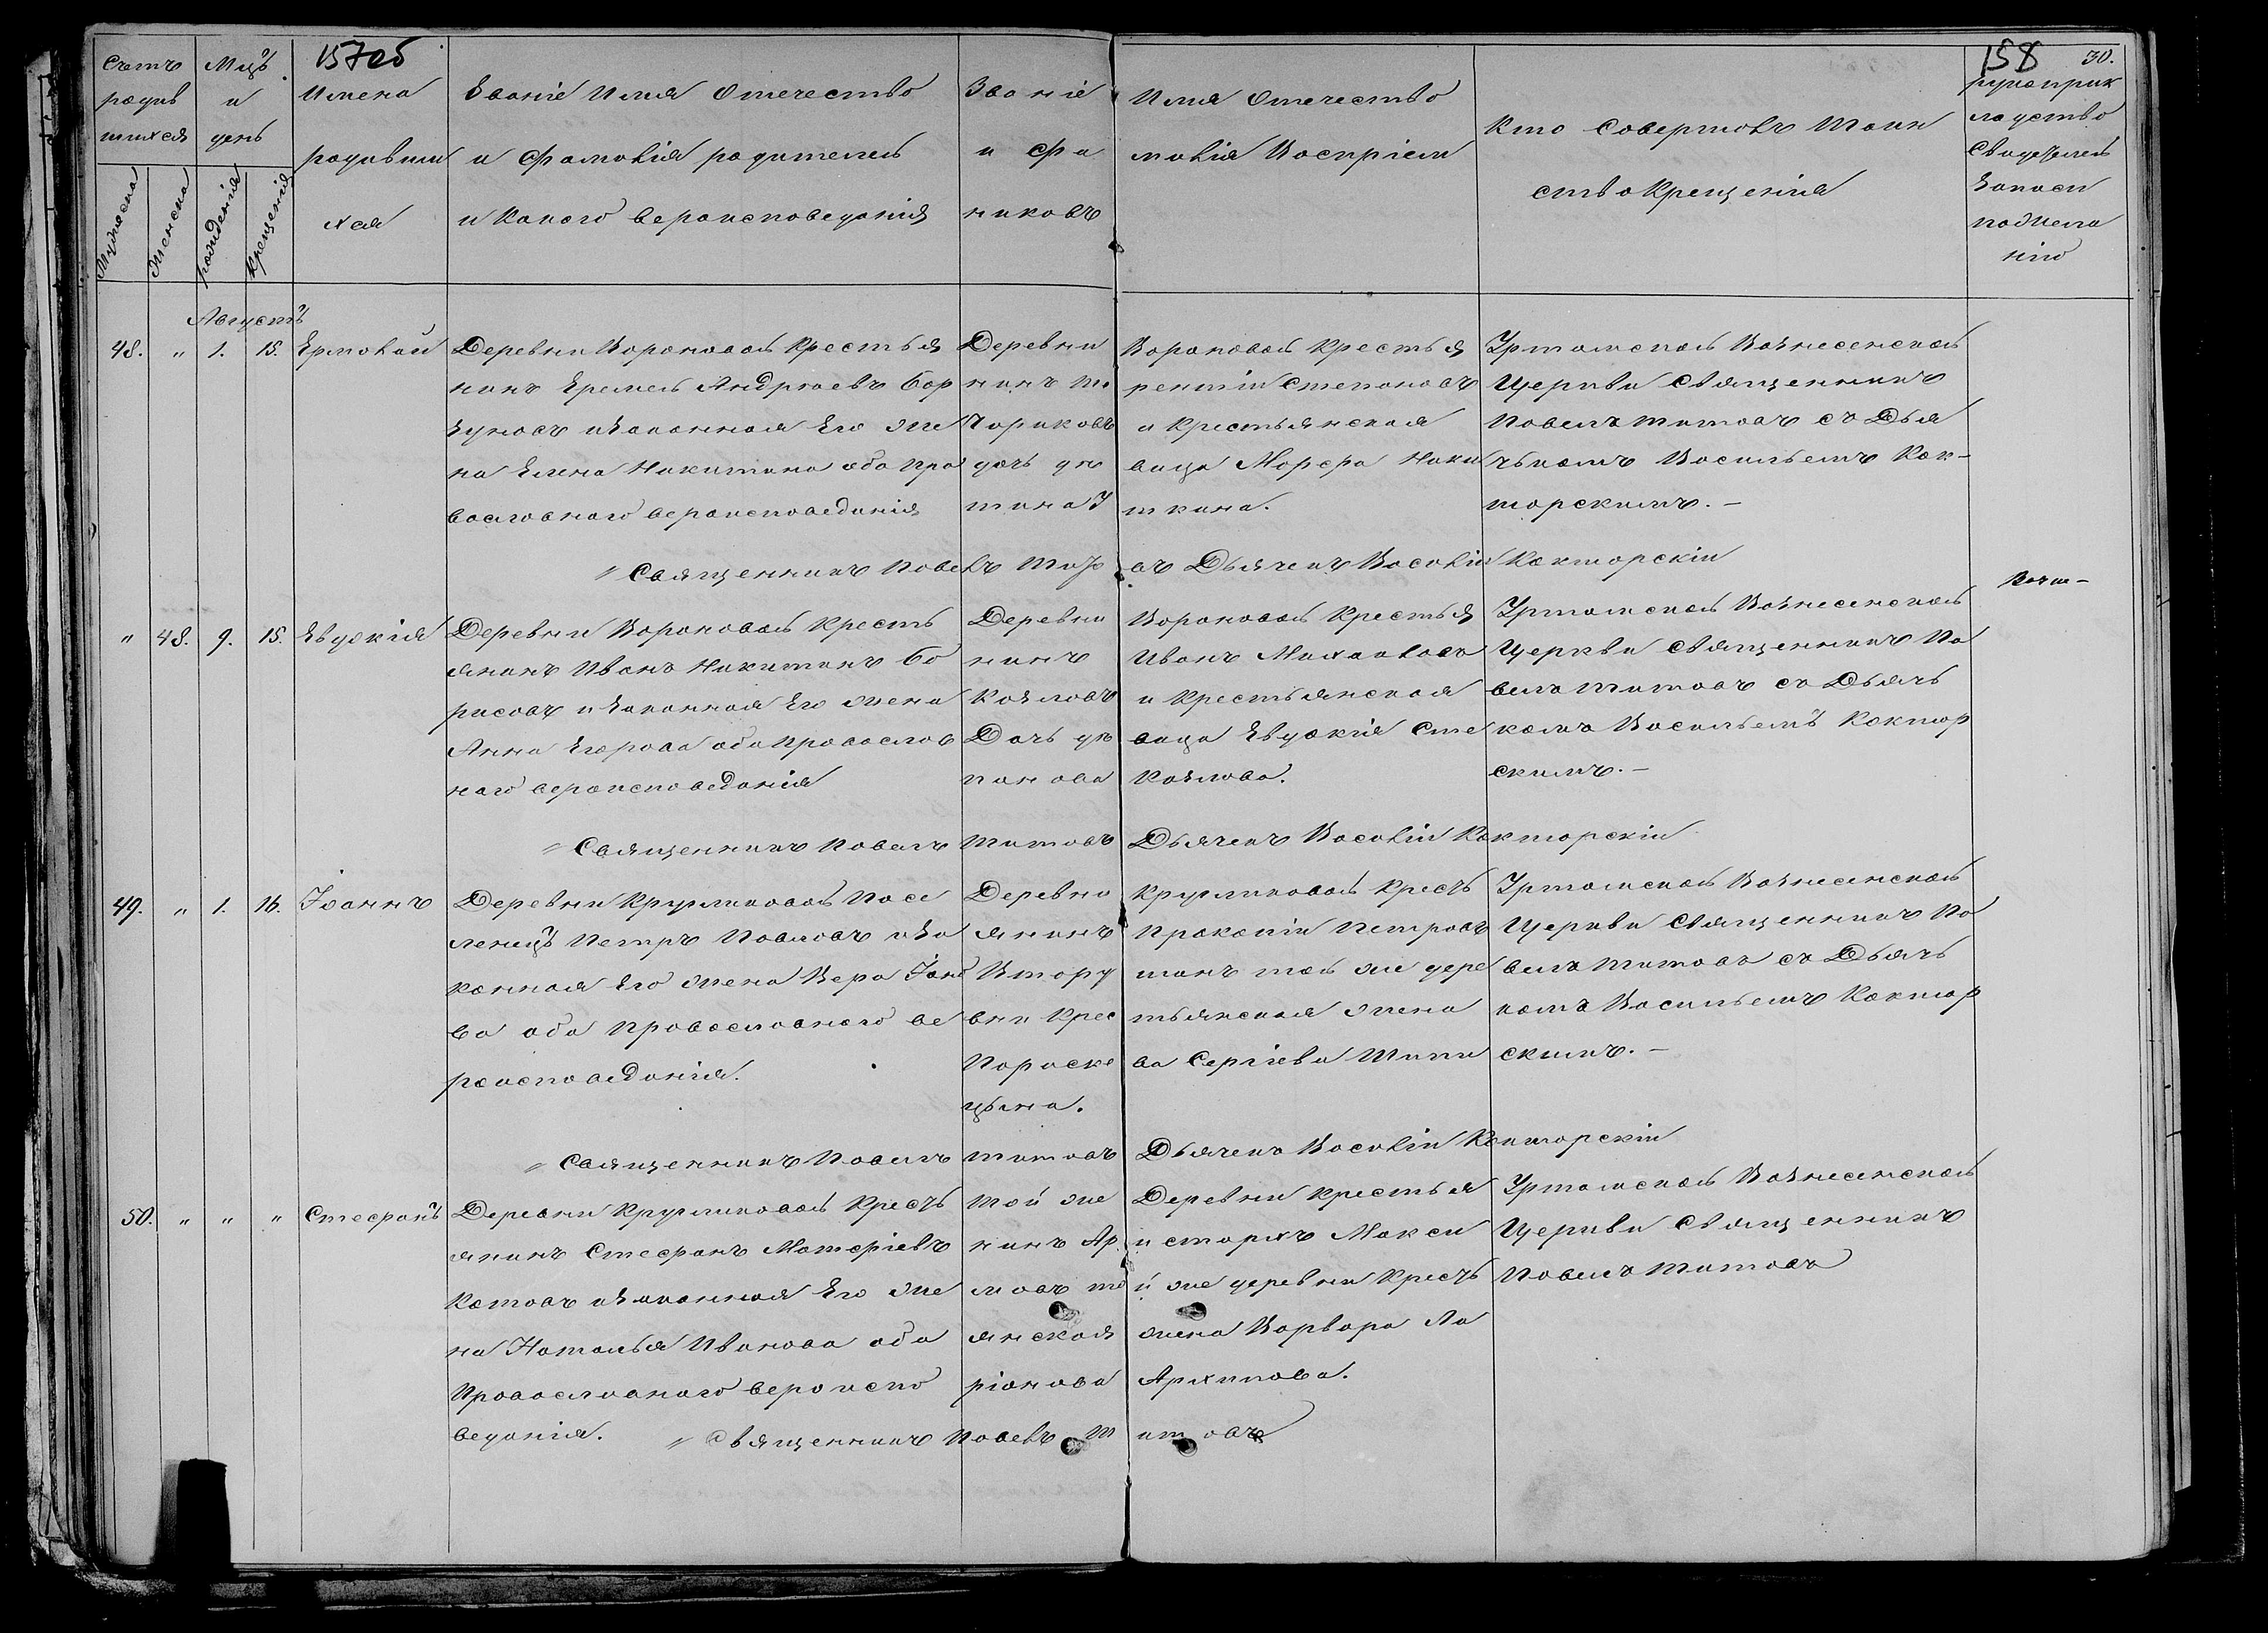 157об
158 30.
Счетъ родив шихся
Мужеска Женска
Мцъ и день
рожденія крещенія
Имена родивши хся
Званіе Имя Отечество и Фамилія родителей и Какого вероисповеданія
Званіе Имя Отечество и Фа милія Воспріем никовъ
Кто Совершилъ Таин ство Крещенія
рукоприк ладство Свидетелей Записи по Жела нію
Августъ
48. " 1. 15. Ермолай
Деревни Вороновой Крестья
нинъ Еремей Андреевъ Бор
зуновъ и Законная Его же
на Елена Никитина оба пра
вославного вероисповеданія
Деревни Вороновой Крестья
нинъ Те рентій Степановъ
Чориковъ и Крестьянская
дочь де вица Марфа Ники
тина У ткина.
Уртамской Вознесенской
Церкви Священникъ
Павелъ Титовъ съ Дья
чькомъ Васильемъ Кок-
торскимъ. -
Священникъ Павелъ Титовъ Дьячекъ Василій Кокторскій
" 48. 9. 15. Евдокія
Деревни Вороновой Кресть
янинъ Иванъ Никитинъ Бо
рисовъ и Законная Его жена
Анна Егорова оба Православ
ного вероисповеданія
Деревни Вороновой Крестья
нинъ Иванъ Михаиловъ
Козловъ и Крестьянская
Дочь де вица Евдокія Сте
панова Козлова.
Уртамской Вознесенской
Церкви Священникъ Па
велъ Титовъ съ Дьячь
комъ Васильемъ Коктор
скимъ. -
Священникъ Павелъ Титовъ Дьячекъ Василій Кокторскій
49. " 1. 16. Іоаннъ
Деревни Кругликовой Посе
ленецъ Петръ Павловъ и За
конная Его жена Вера Іако
ва оба Православного ве
роисповеданія.
Деревни Кругликовой Кресть
янинъ Прокопій Петровъ
Втору шинъ той же дере
вни Крес тьянская жена
Параске ва Сергіева Типи
цына.
Уртамской Вознесенской
Церкви Священникъ Па
велъ Титовъ съ Дьячь
комъ Васильемъ Коктор
скимъ. -
Священникъ Павелъ Титовъ Дьячекъ Василій Кокторскій
50. " " " Стефанъ
Деревни Кругликовой Кресть
янинъ Стефанъ Матфіевъ
Котовъ и Законная Его же
на Наталья Иванова оба
Православного вероиспо
веданія.
Той же Деревни Крестья
нинъ Ар истархъ Макси
мовъ то й же деревни Кресть
янская жена Варвара Ла
ріонова Архипова.
Уртамской Вознесенской
Церкви Священникъ
Павелъ Титовъ
Священникъ Павелъ Титовъ